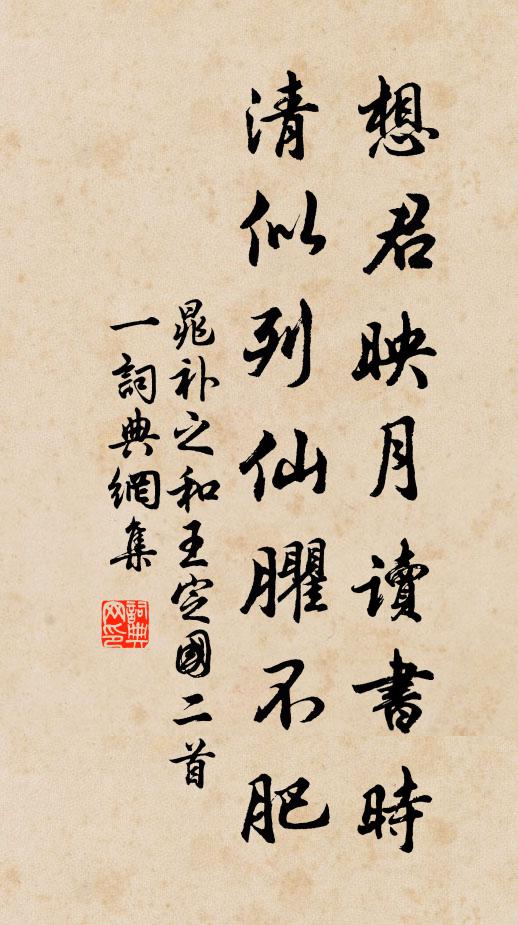 想君映月讀書時
清似列仙臞不肥
晁補之和王定國二首
一詞典網集
詞典网印